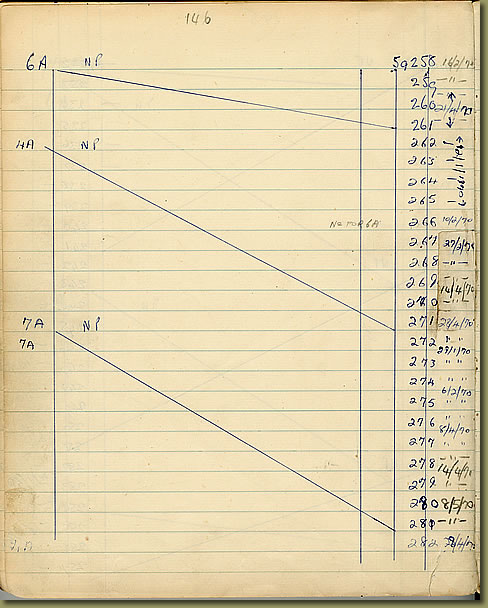 146
6A NP 59258 16/2/70
259 -"-
260 21/4/70
261
4A NP 262
263
264
265
266 10/2/70
267 27/2/70
268 -"-
269
270 14/4/70
7A NP 271 28/4/70
7A 272 " "
273 29/1/70 " "
274 " "
275 6/2/70 " "
276 " "
277 8/4/70 " "
278
279 14/4/70 "
280 8/5/70
281 -"-
282